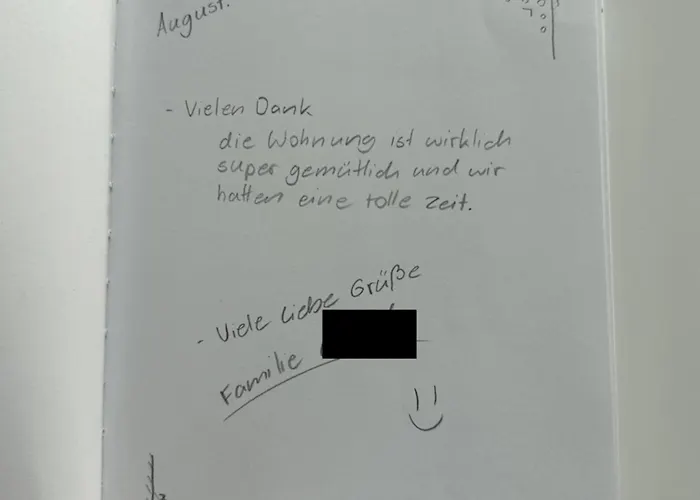 August.
- Vielen Dank
die Wohnung ist wirklich
super gemütlich und wir
hatten eine tolle Zeit.
- Viele liebe Grüße
Familie